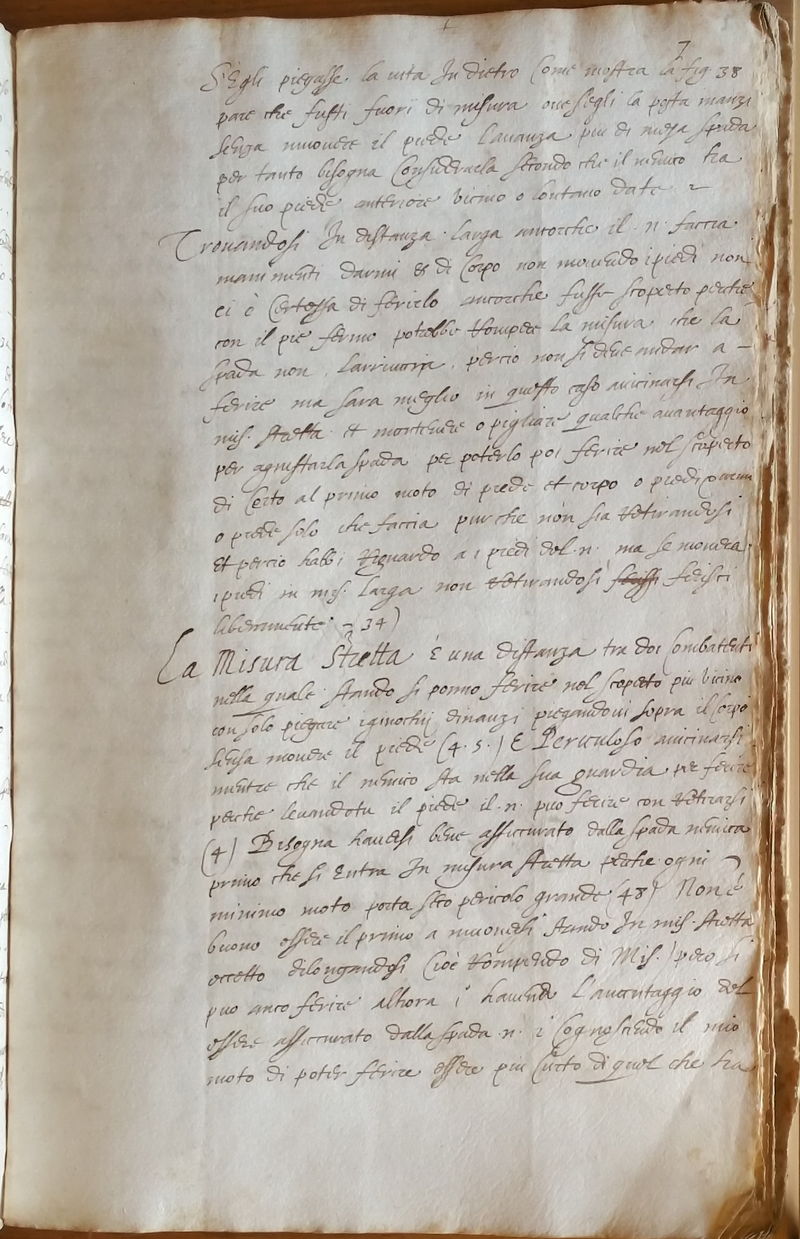 7
S'Egli piegasse la vita In dietro Come mostra la fig 38
pare che fusti fuori di misura oue s'egli la porta inanzi
senza muouere il piede l'auanza piu di meza spada
per tanto bisogna Considerarla secondo che il nemico ha
il suo piede anteriore vicino o lontano date
Trouandosi In distanza larga ancorche il .n. faccia
mouimenti d'armi & di Corpo non mouendo i piedi non
ci è Certessa di ferirlo ancorche fusse scoperto perche
con il piè fermo potrebbe Rompere la misura che la
spada non l'arriuaria, percio non si deue andar a
ferire ma sara meglio in questo caso auicinarsi In
mis. stretta et mouere o pigliare qualche auantaggio
per agiustar la spada per poterlo poi ferire nel scoperto
di Certo al primo moto di piede et corpo o piedi
o piede solo che faccia purche non sia Retirandosi
et percio habbi Riguardo a i piedi del .n. ma se mouera
i piedi in mis. larga non Retirandosi ferisci
liberamente 34)
La Misura Stretta è una distanza tra doi Combattenti
nella quale stando si ponno ferire nel scoperto piu vicino
con solo piegare i ginochij dinanzi piegandoui sopra il Corpo
senza mouere il piede (4.5.) È Periculoso auicinarsi
mentre che il nemico sta nella sua guardia per ferire
perche leuando tu il piede il .n. puo ferire con Retirarsi
(4) Bisogna hauersi bene assiccurato dalla spada nemica
primo che si Entra In misura stretta perche ogni
minimo moto porta seco pericolo grande (48) Non è
buono essere il primo a muouersi stando In mis. stretta
eccetto dilongandosi Cioè Rompendo di Mis. pero si
puo anco ferire alhora hauendo l'auantaggio del
essere assiccurato dalla spada .n. Cognoscendo il mio
moto di poter ferire essere piu Curto di quel che ha